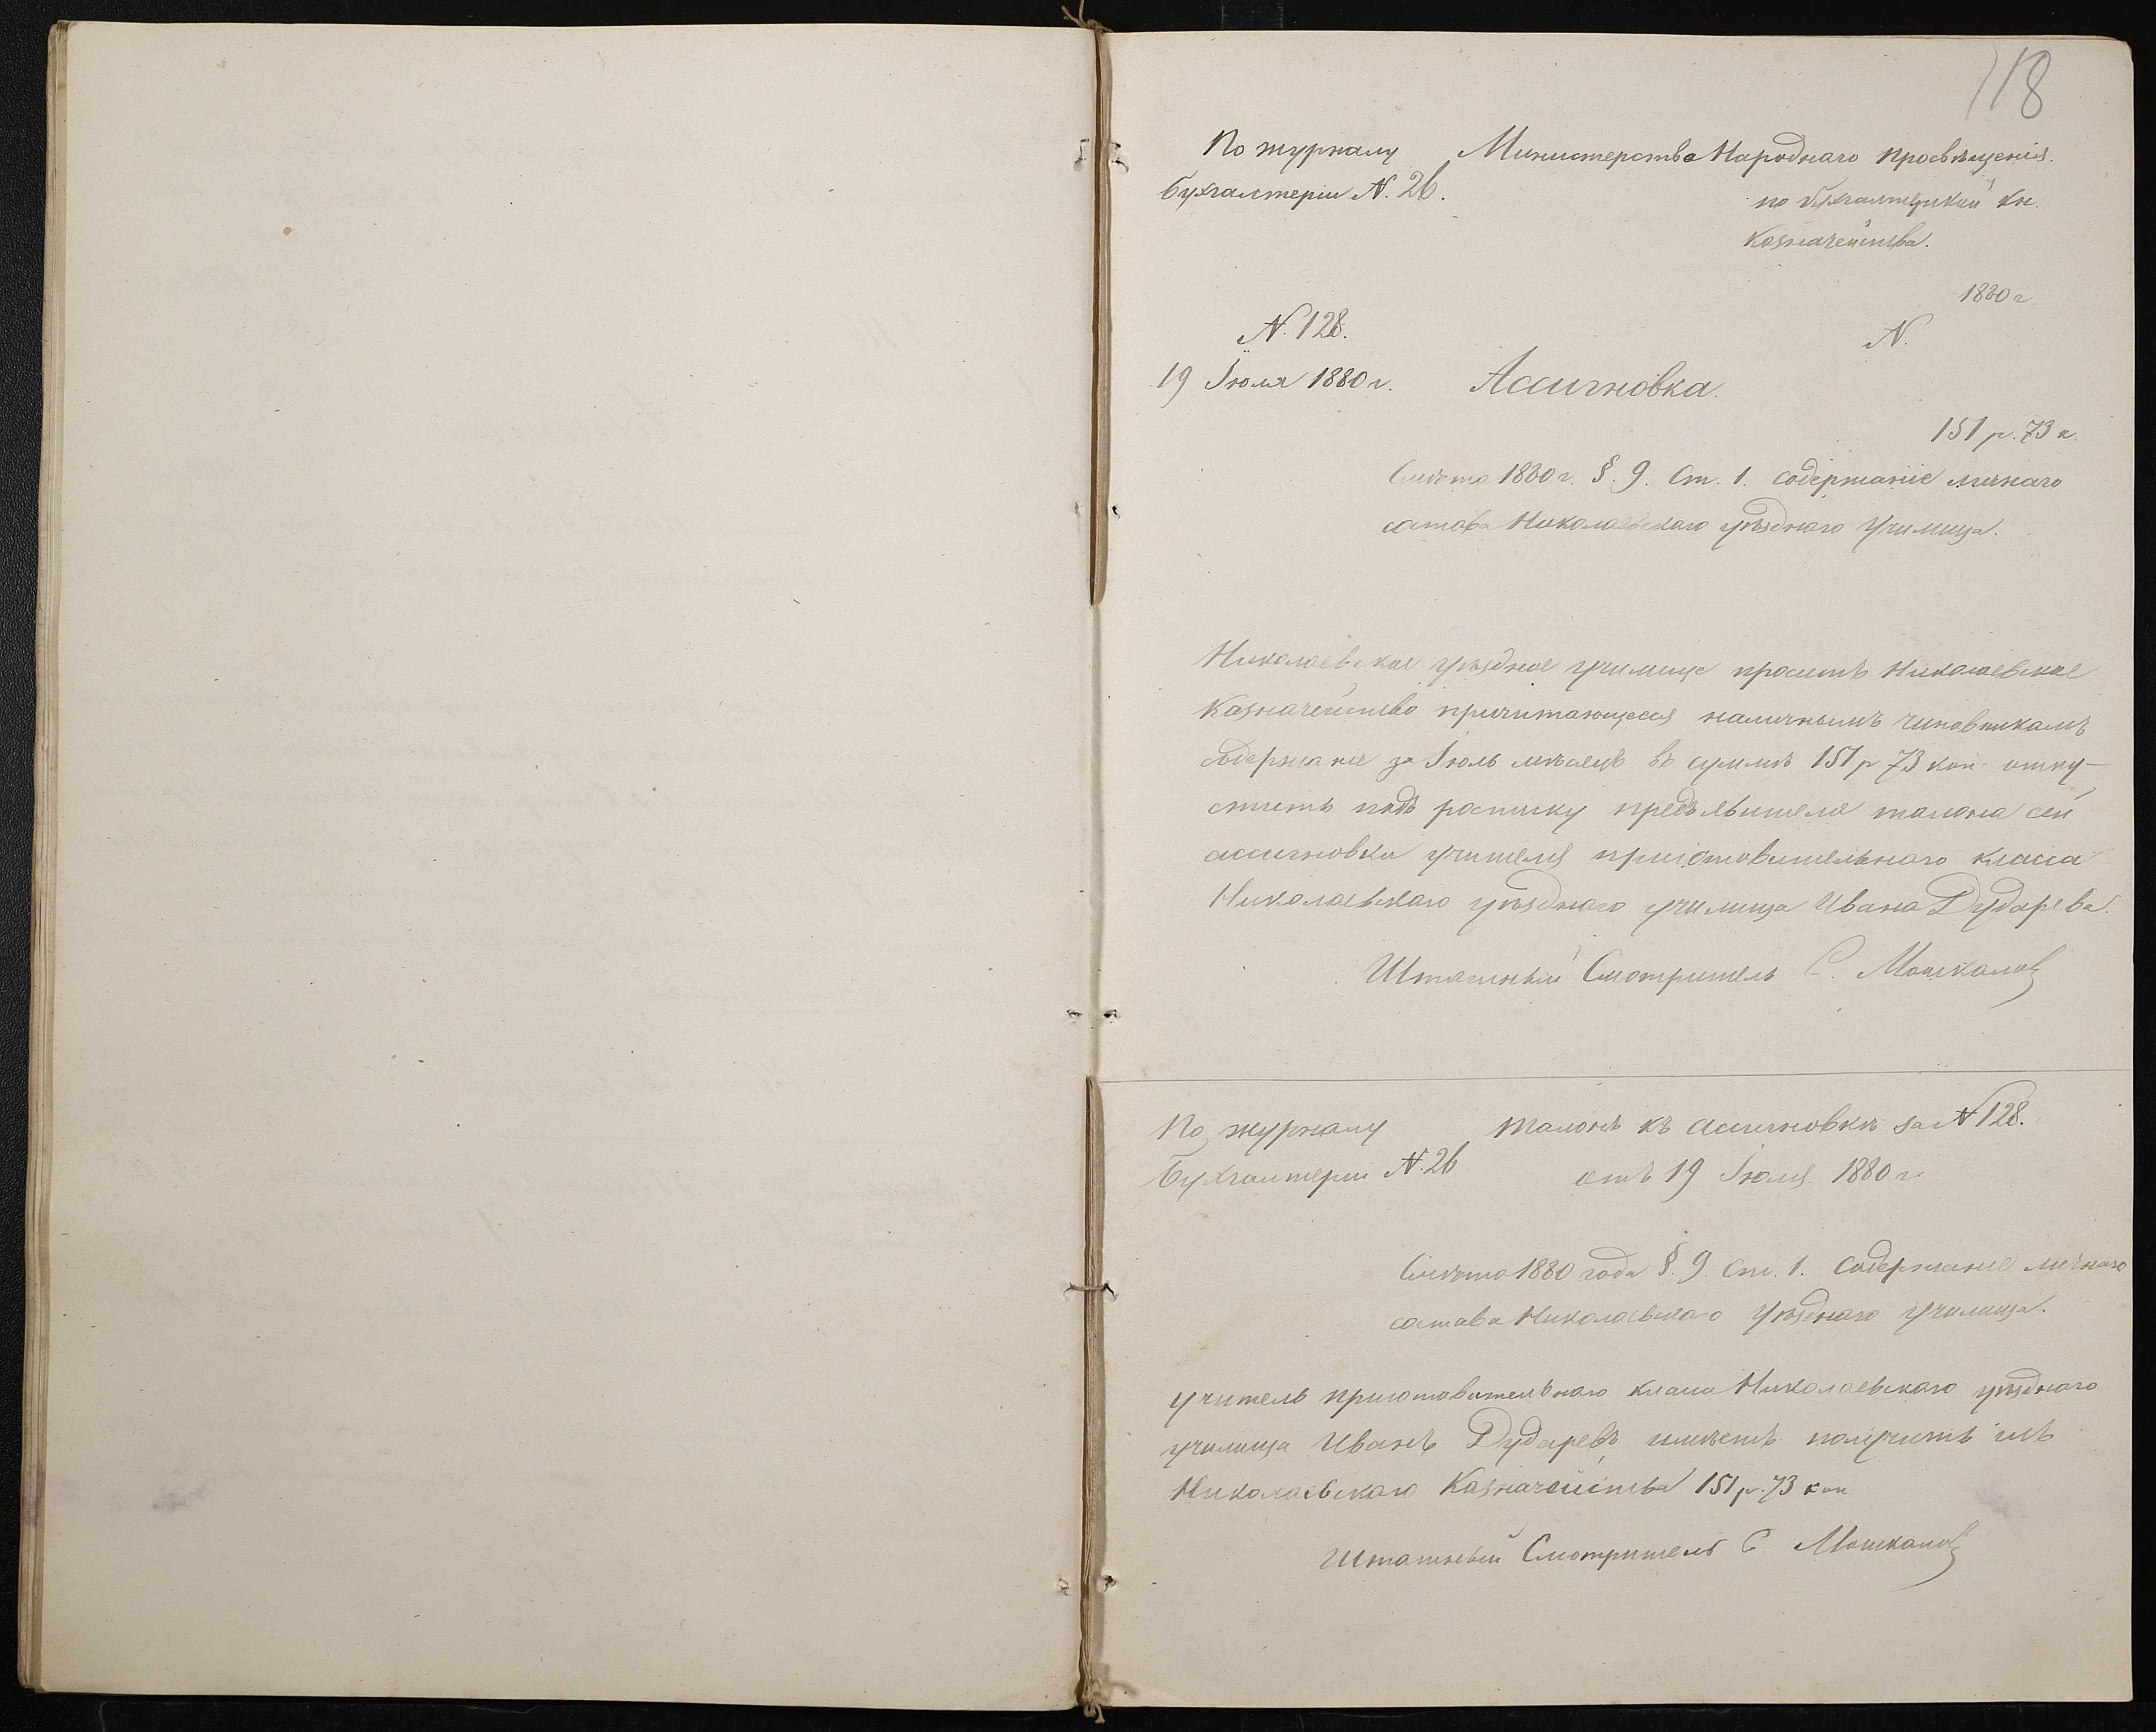 118
По журналу
Бухгалтеріи N. 26.
Министерства Народнаго Просвѣщенія.
по бухгалтерской кн.
Казначейства.
1880 г.
N.
N. 128.
19 Іюля 1880 г.
Ассигновка.
151 р. 73 к.
Смѣта 1880 г. §. 9. Ст. 1. Содержаніе личнаго
состава Николаевскаго уѣзднаго Училища.
Николаевское уѣздное училище проситъ Николаевское
Казначейство причитающееся наличнымъ чиновникамъ
содержаніе за Іюль мѣсяцъ въ суммѣ 151 р 73 коп отпу-
стить подъ росписку предъявителя талона сей
ассигновки учителя приготовительнаго класса
Николаевскаго уѣзднаго училища Ивана Дударева.
Штатный Смотритель С. Мошкалов
По журналу
Бухгалтеріи N. 26
Талонъ къ ассигновкѣ за N 128.
отъ 19 Іюля 1880 г
Смѣта 1880 года §. 9. Ст. 1. Содержаніе личнаго
состава Николаевскаго Уѣзднаго Училища.
Учитель приготовительнаго класса Николаевскаго уѣзднаго
училища Иванъ Дударевъ имѣетъ получить изъ
Николаевскаго Казначейства 151 р. 73 коп
Штатный Смотритель С. Мошкалов